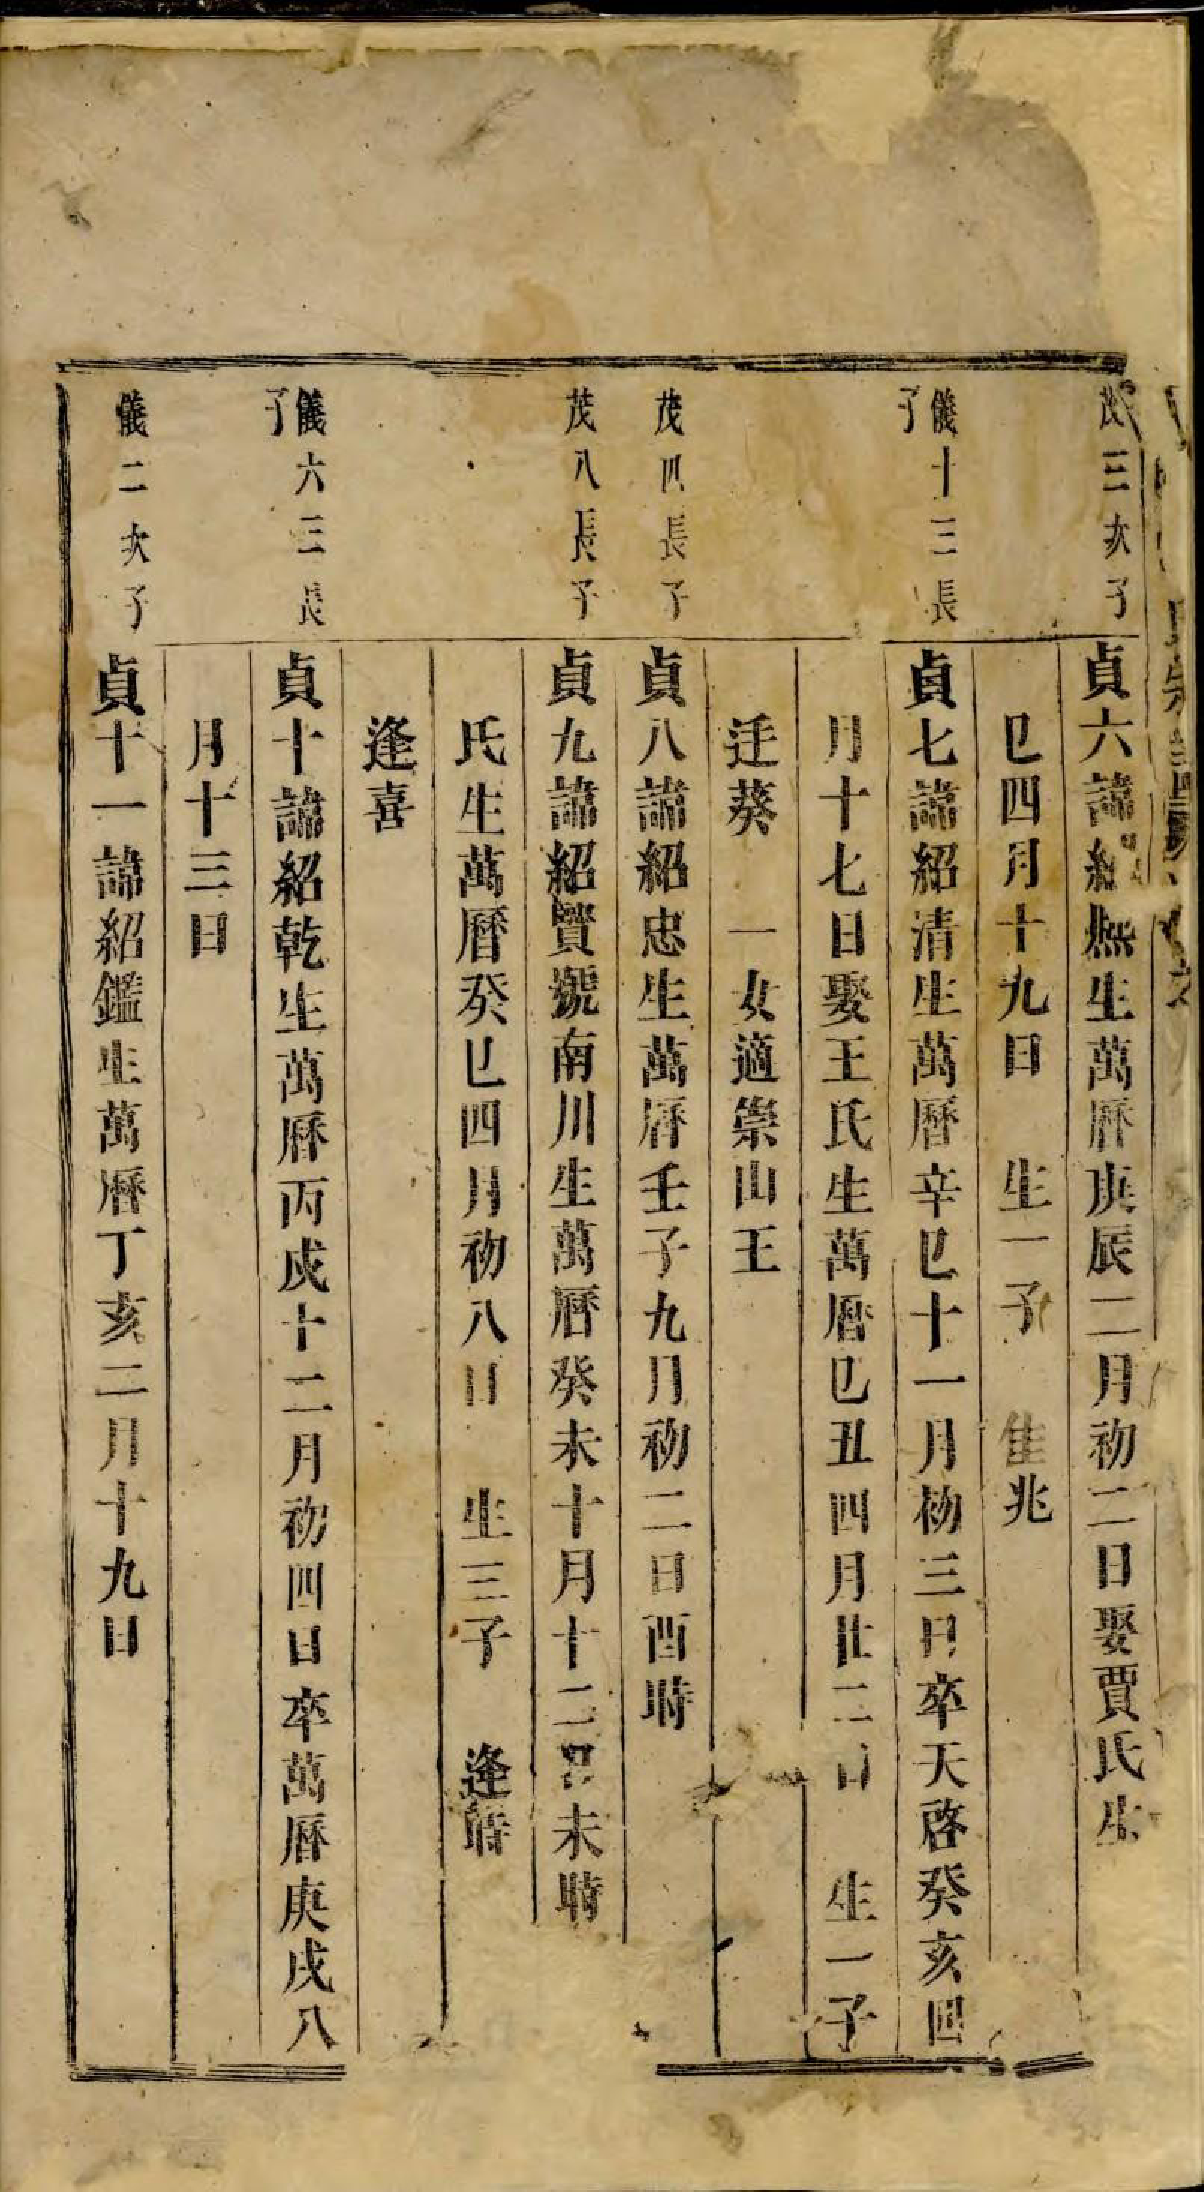 茂三次子
貞六諱紹熈生萬曆庚辰二月初二日娶賈氏生
巳四月十九日 生一子 兆
儀十三長子
貞七諱紹清生萬曆辛巳十一月初三日卒天啓癸亥四
月十七日娶王氏生萬曆巳丑四月廿二日 生一子
迋葵 一女適崇山王
茂四長子
貞八諱紹忠生萬曆壬子九月初二日酉時
茂八長子
貞九諱紹贒號南川生萬曆癸未十月十二日未時
氏生萬曆癸巳四月初八日 生三子 逢
逢喜
儀六三長子
貞十諱紹乾生萬曆丙戍十二月初四日卒萬曆庚戍八
月十三日
儀二次子
貞十一諱紹鑑生萬曆丁亥二月十九日